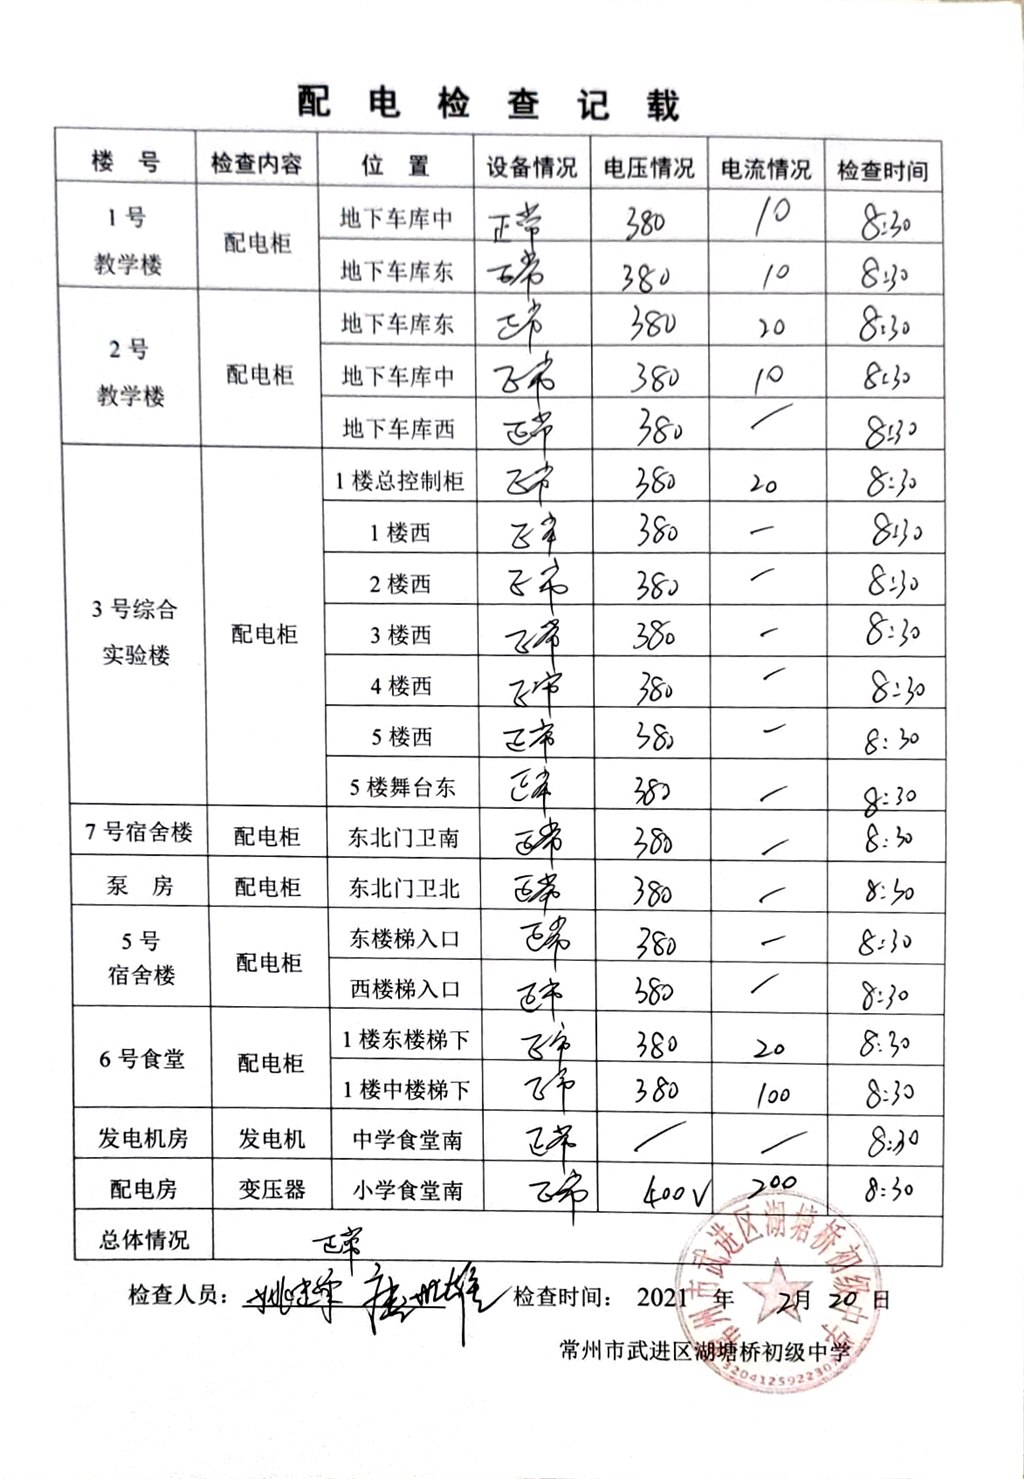 配电检查记载
楼 号 检查内容 位 置 设备情况 电压情况 电流情况 检查时间
1号教学楼 配电柜 地下车库中 正常 380 10 8:30
地下车库东 正常 380 10 8:30
2号教学楼 配电柜 地下车库东 正常 380 20 8:30
地下车库中 正常 380 10 8:30
地下车库西 正常 380 / 8:30
3号综合实验楼 配电柜 1楼总控制柜 正常 380 20 8:30
1楼西 正常 380 / 8:30
2楼西 正常 380 / 8:30
3楼西 正常 380 / 8:30
4楼西 正常 380 / 8:30
5楼西 正常 380 / 8:30
5楼舞台东 正常 380 / 8:30
7号宿舍楼 配电柜 东北门卫南 正常 380 / 8:30
泵 房 配电柜 东北门卫北 正常 380 / 8:30
5号宿舍楼 配电柜 东楼梯入口 正常 380 / 8:30
西楼梯入口 正常 380 / 8:30
6号食堂 配电柜 1楼东楼梯下 正常 380 20 8:30
1楼中楼梯下 正常 380 100 8:30
发电机房 发电机 中学食堂南 正常 / / 8:30
配电房 变压器 小学食堂南 正常 400V 200 8:30
总体情况 正常
检查人员： 检查时间： 2021 年 2月 20 日
常州市武进区湖塘桥初级中学
常州市武进区湖塘桥初级中学